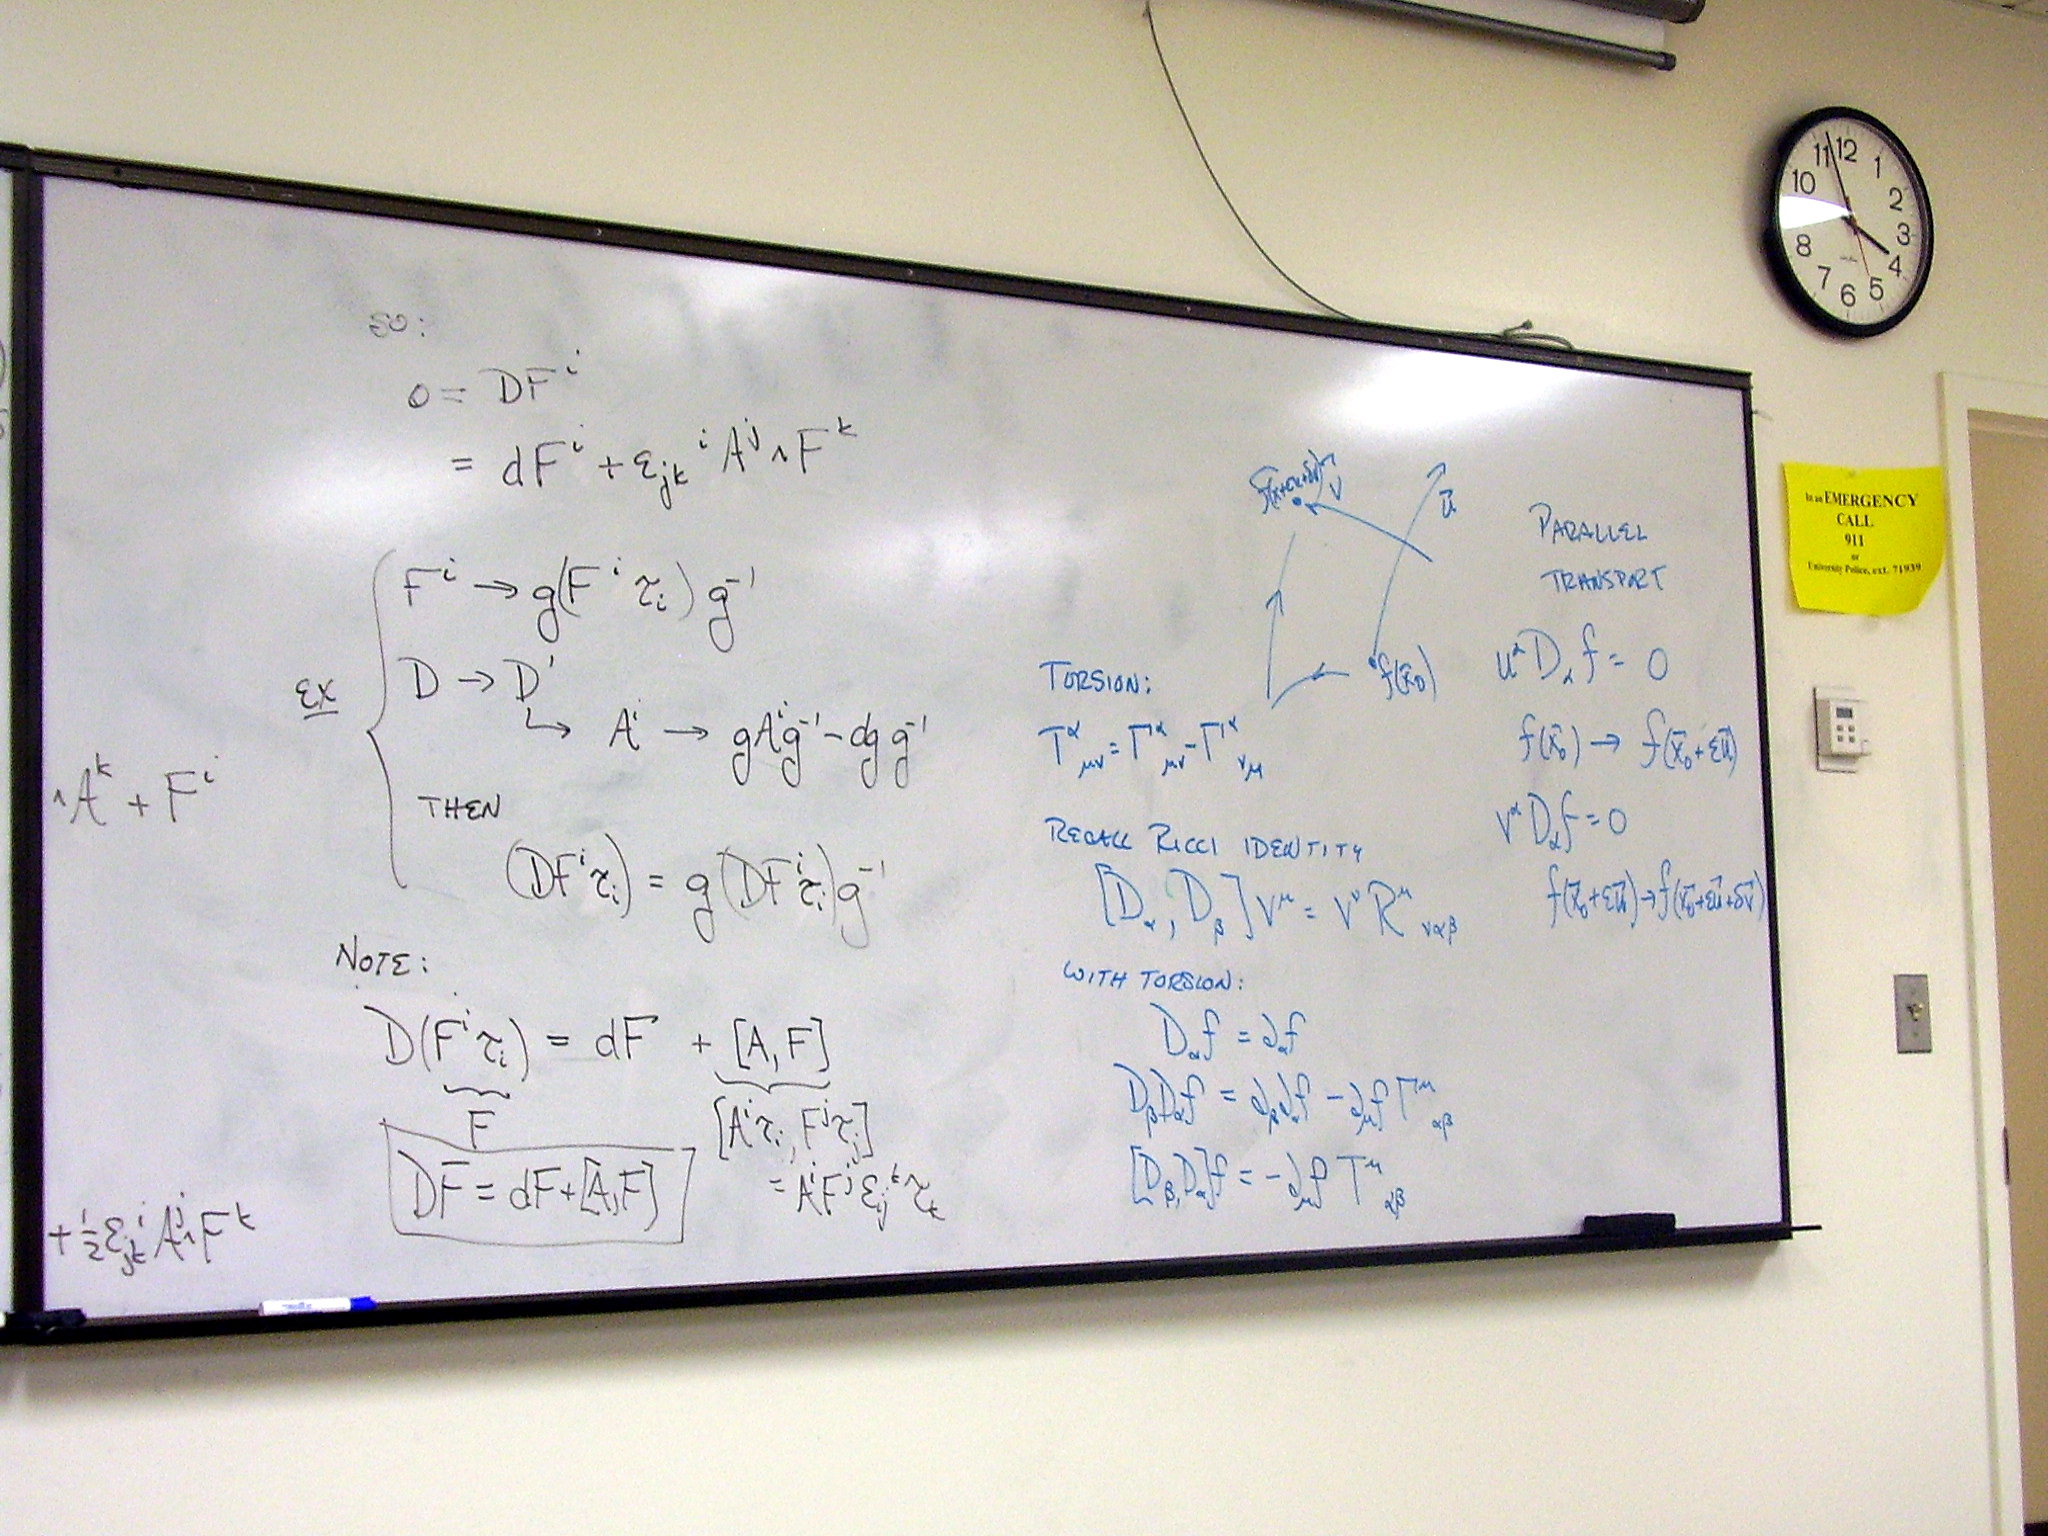 SO:
0 = DF^i
= dF^i + ε_{jk}^i A^j ∧ F^k
EX
F^i → g(F^i τ_i) g^{-1}
D → D'
↳ A^i → gA^i g^{-1} - dg g^{-1}
THEN
(DF^i τ_i) = g(DF^i τ_i)g^{-1}
NOTE:
D(F^i τ_i) = dF + [A, F]
F
[A^i τ_i, F^j τ_j]
= A^i F^j ε_{ij}^k τ_k
DF = dF + [A, F]
∧A^k + F^i
+ ½ ε_{jk}^i A^j ∧ F^k
v⃗
u⃗
f(x⃗_0)
TORSION:
T^α_{μν} = Γ^α_{μν} - Γ^α_{νμ}
RECALL RICCI IDENTITY
[D_α, D_β] V^μ = V^ν R^μ_{ναβ}
WITH TORSION:
D_α f = ∂_α f
D_β D_α f = ∂_β ∂_α f - ∂_μ f Γ^μ_{αβ}
[D_β, D_α] f = - ∂_μ f T^μ_{αβ}
PARALLEL
TRANSPORT
u^α D_α f = 0
f(x⃗_0) → f(x⃗_0 + εu⃗)
v^α D_α f = 0
f(x⃗_0 + εu⃗) → f(x⃗_0 + εu⃗ + δv⃗)
12
1
2
3
4
5
6
7
8
10
11
In an EMERGENCY
CALL
911
or
University Police, ext. 71939